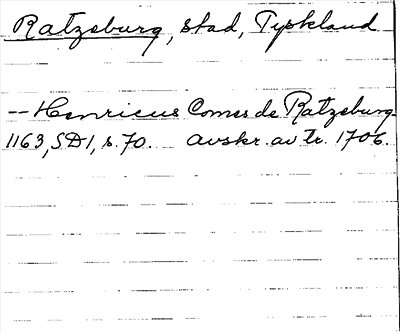 Ratzeburg, stad, Tyskland
-- Henricus Comes de Ratzeburg
1163, SD1, s. 70. avskr. av tr. 1706.